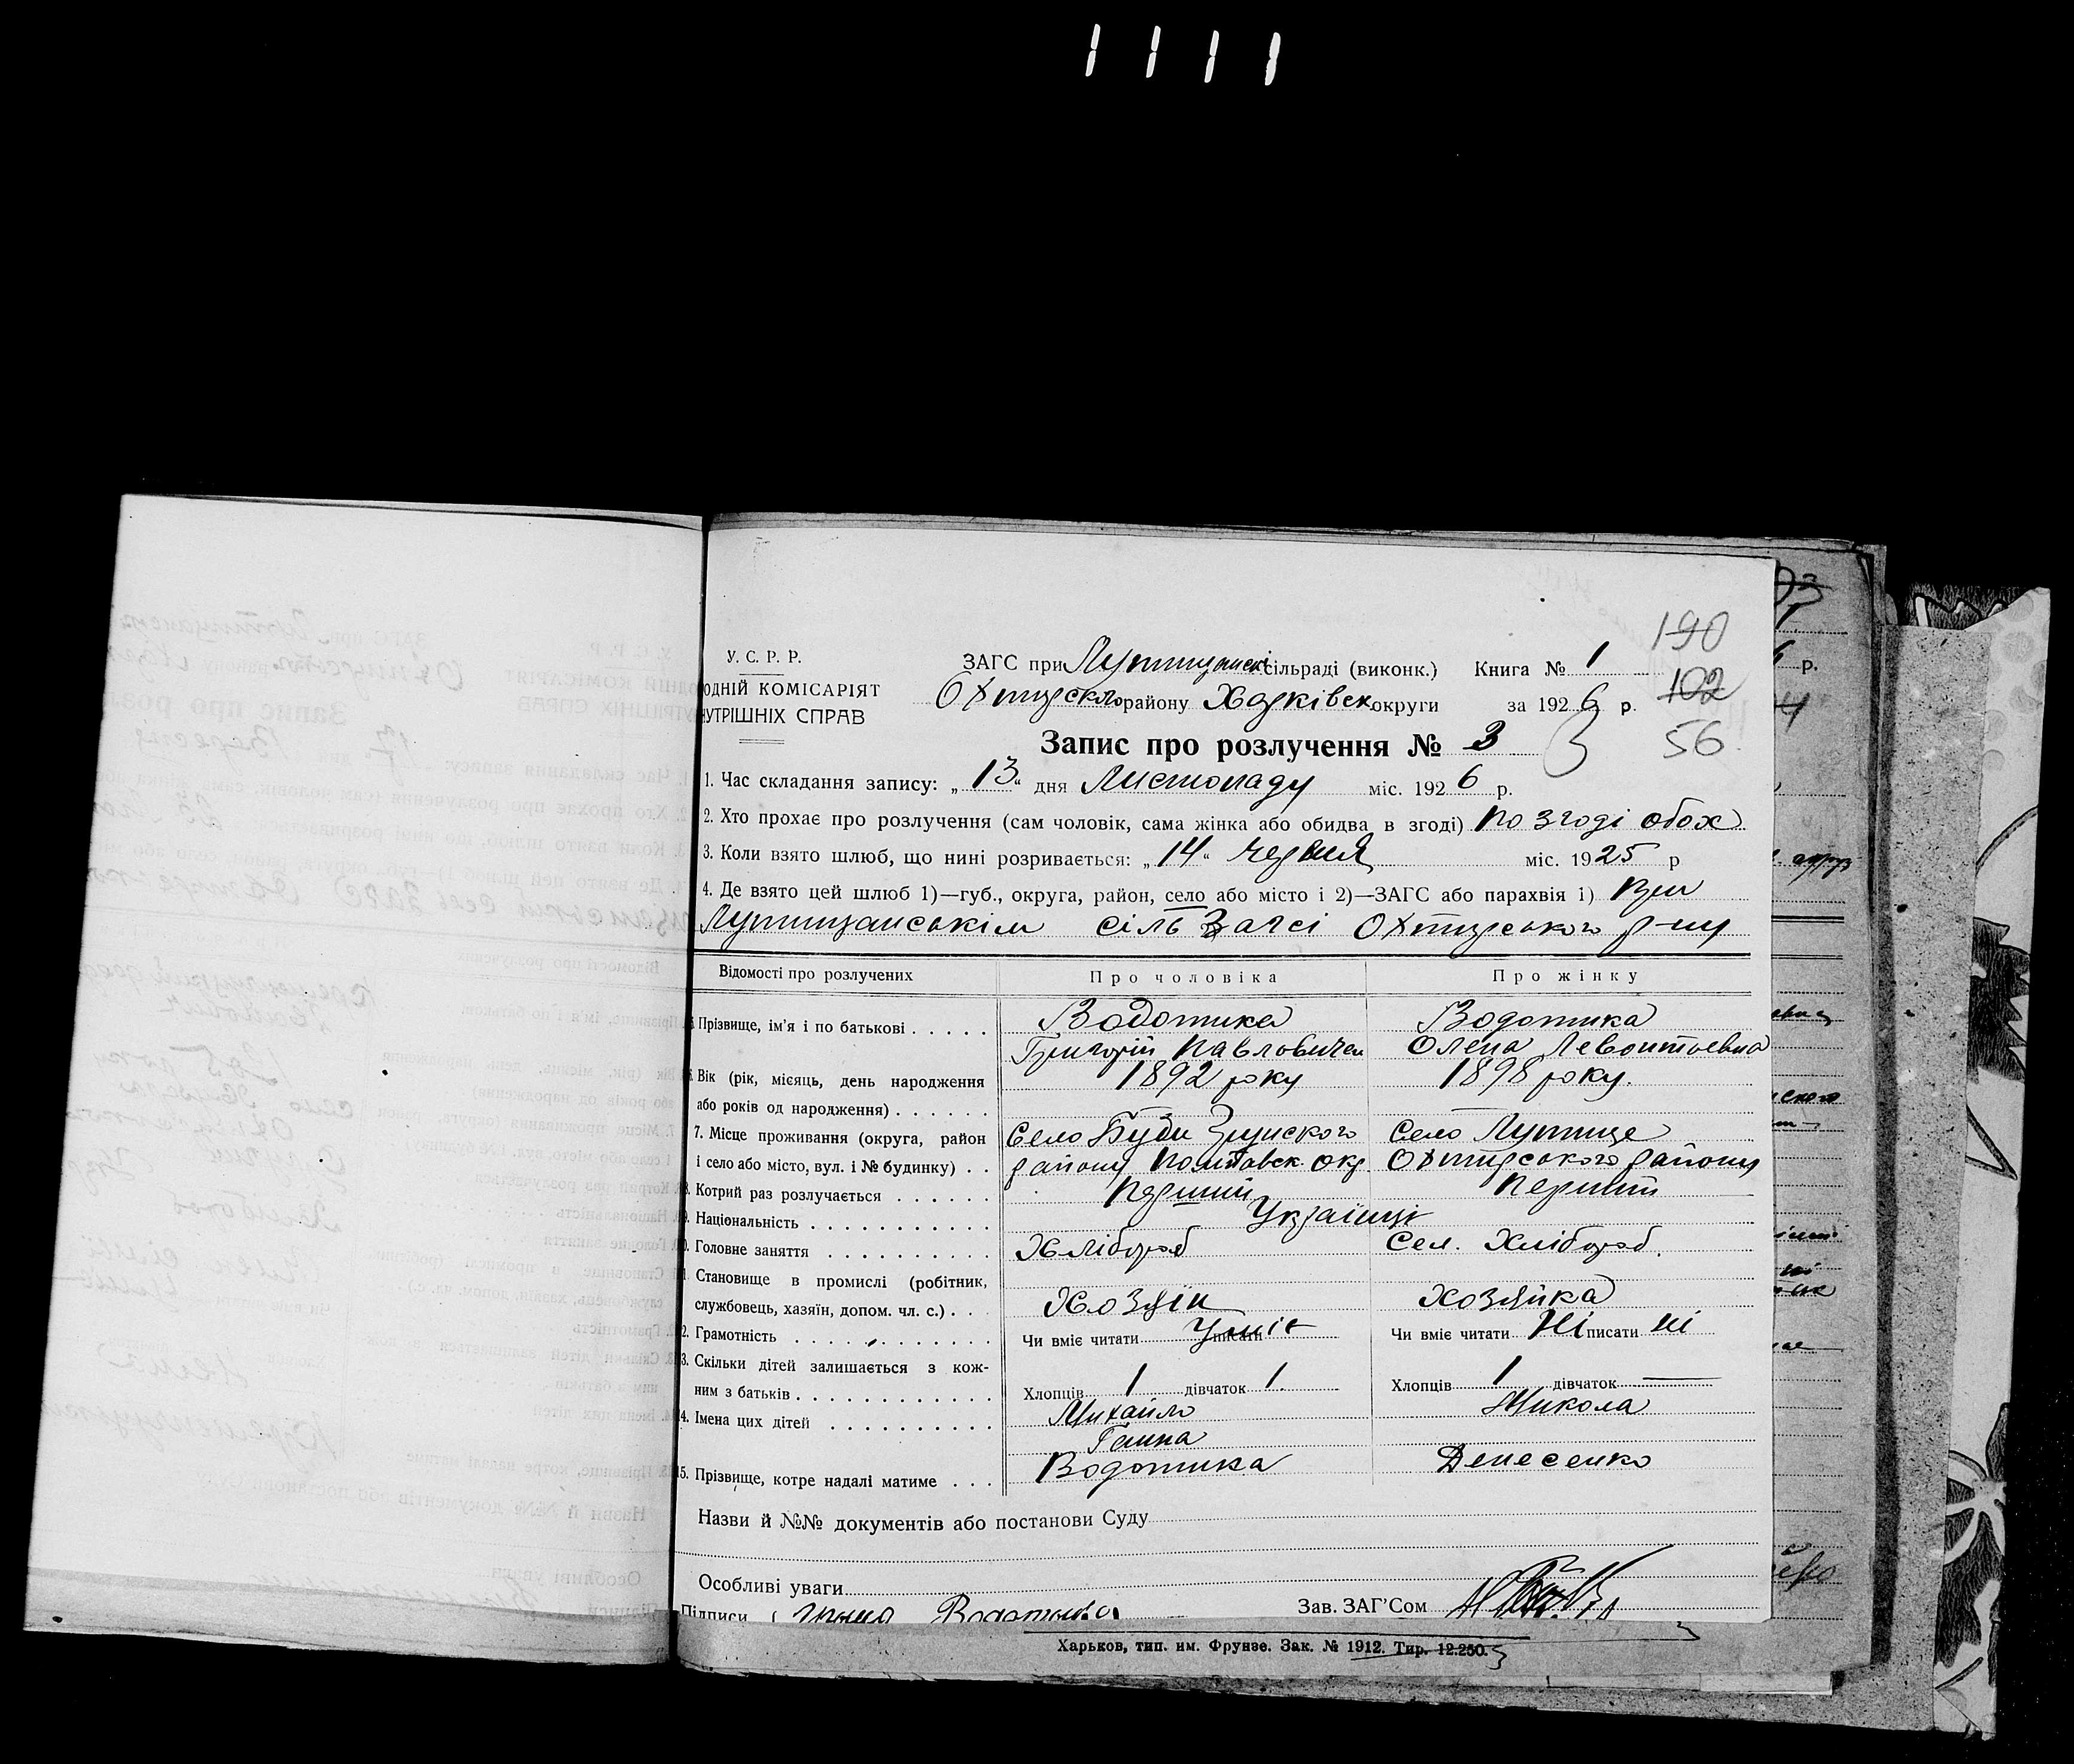 1111
190
У. С. Р. Р. ЗАГС при Лутищанскі сільраді (виконк.) Книга № 1
ОДНІЙ КОМІСАРІЯТ Охтирского району Харківск округи за 1926 р. 102
НУТРІШНІХ СПРАВ
Запис про розлучення № 3 3 56
1. Час складання запису: „13" дня Листопаду міс. 1926 р.
2. Хто прохає про розлучення (сам чоловік, сама жінка або обидва в згоді) по згоді обох
3. Коли взято шлюб, що нині розривається: „14" червня міс. 1925 р
4. Де взято цей шлюб 1)—губ., округа, район, село або місто і 2)—ЗАГС або парахвія 1) При
Лутищанськім сільЗагсі Охтирського р-ну
Відомості про розлучених Про чоловіка Про жінку
Прізвище, ім'я і по батькові Водотика Водотика
Григорій Павлович Олена Левонтьевна
Вік (рік, місяць, день народження 1892 року 1898 року.
або років од народження)
7. Місце проживання (округа, район Село Буди Зіньского Село Лутище
і село або місто, вул. і № будинку) району Полтавск. окр. Охтирського району
Котрий раз розлучається Перший Перший
Національність Українці
0. Головне заняття Хлібороб Сел. Хлібороб.
1. Становище в промислі (робітник,
службовець, хазяїн, допом. чл. с.) Хозяін Хозяйка
2. Грамотність Чи вміє читати Уміє писати Чи вміє читати Ні писати ні
3. Скільки дітей залишається з кож-
ним з батьків Хлопців 1 дівчаток 1. Хлопців 1 дівчаток —
4. Імена цих дітей Михайло Микола
Ганна
15. Прізвище, котре надалі матиме Водотика Денесенко
Назви й №№ документів або постанови Суду
Особливі уваги
Підписи Водотика Зав. ЗАГ'Сом
Харьков, тип. им. Фрунзе. Зак. № 1912. Тир. 12.250.